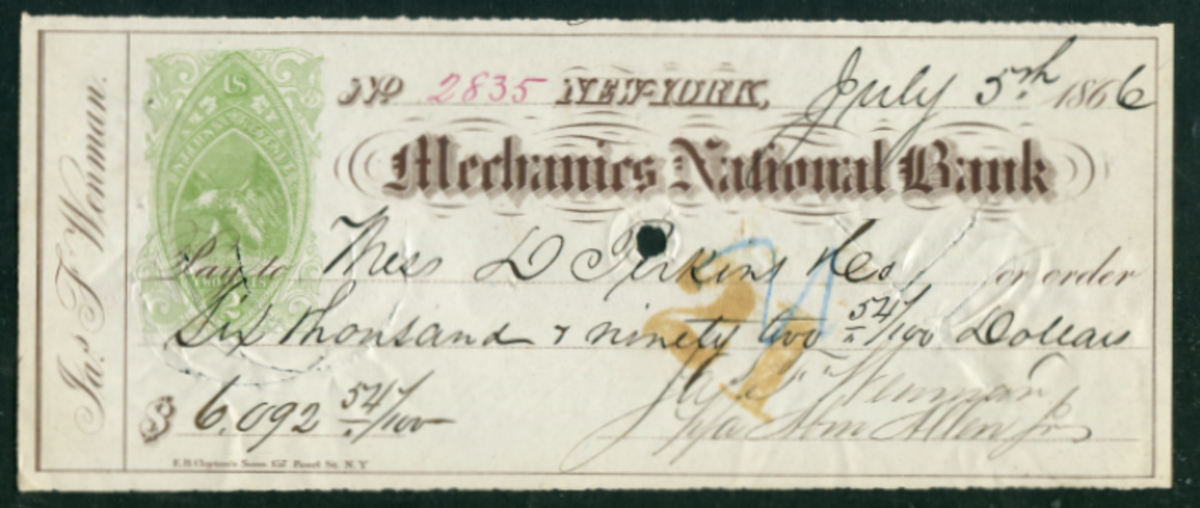 Jas F Wenman.
No 2835 NEW-YORK, July 5th 1866
Mechanics National Bank
US
UNITED STATES
Pay to Mess D Perkins & Co or order
Six thousand & ninety two 54/100 Dollars
$ 6.092 54/100
Jas F Wenman
Abm Allen Jr
E.B. Clayton's Sons 157 Pearl St. N.Y
21